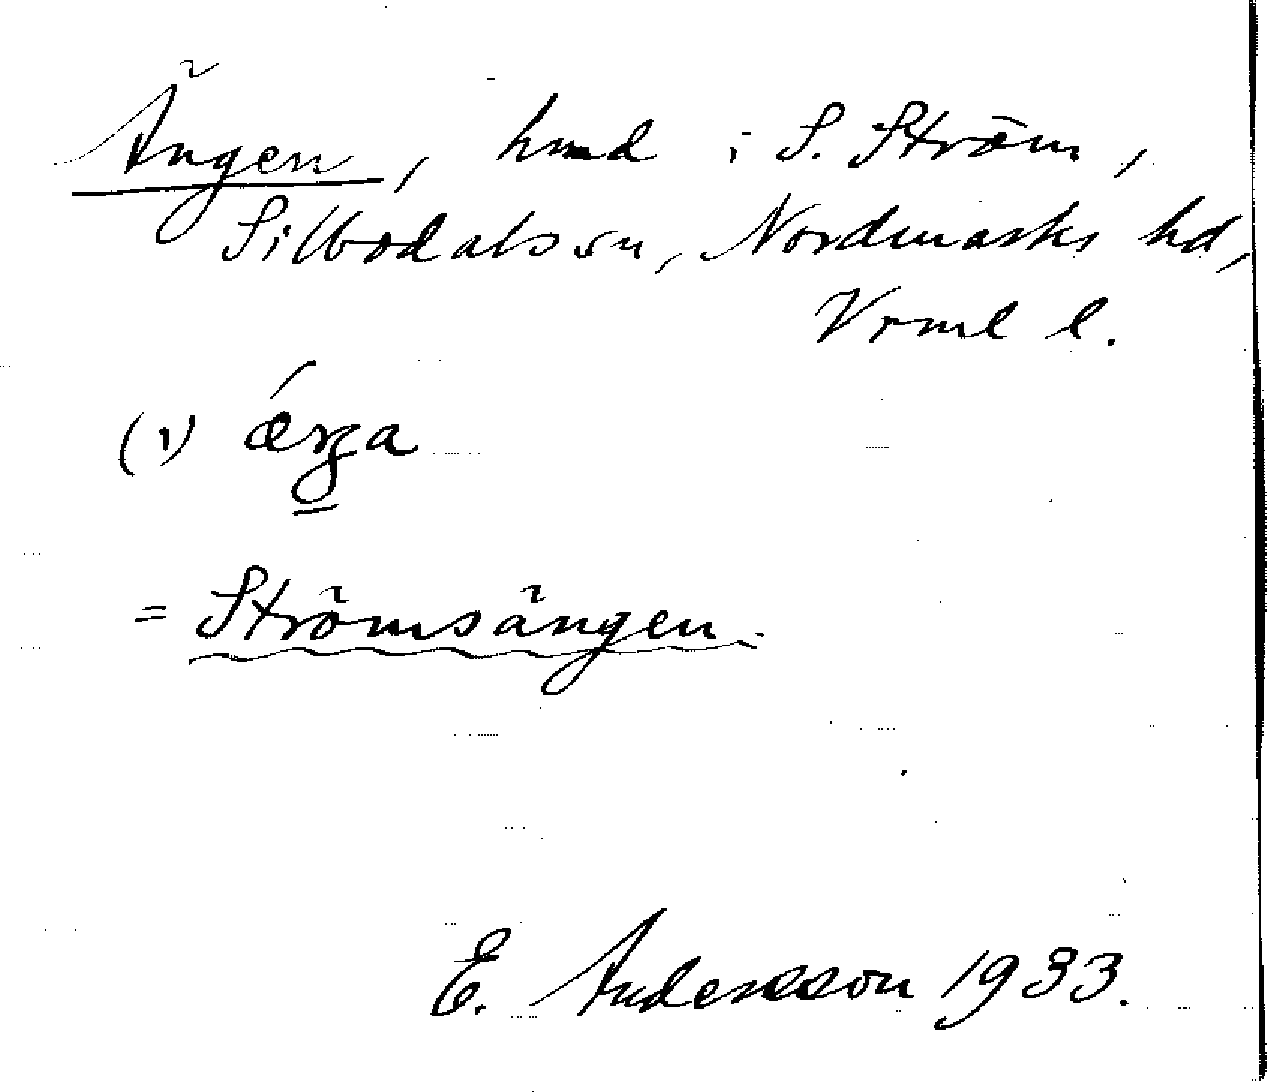 Ängen, hmd i S. Ström,
Silbodals sn, Nordmarks hd,
Vrml l.
(1)
= Strömsängen
E. Andersson 1933.